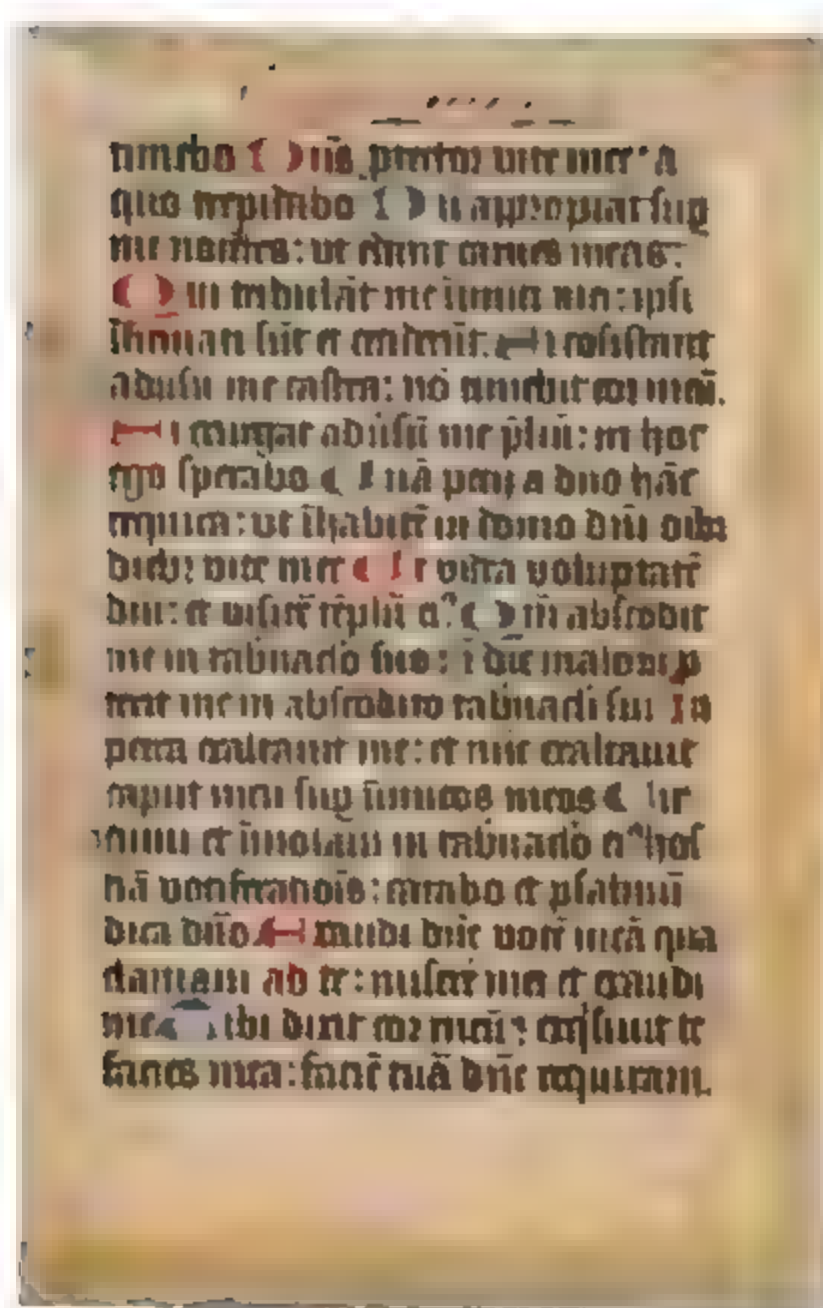 timebo Dn̄s ꝓtector vite mee · a
quo trepidabo Dū appropiāt suꝑ
me nocētes : ut edant carnes meas .
Qui tribulāt me inimici mei : ipsi
īfirmati sūt et ceciderūt . Si cōsistant
adūsū me castra : nō timebit cor meū .
Si exurgat adūsū me p̄liū : in hoc
ego sperabo Unā petij a dn̄o hāc
requirā : ut īhabitē in domo dn̄i oībꝫ
diebꝫ vite mee Ut videā voluptatē
dn̄i : et visitē tēplū eiꝰ Qm̄ abscōdit
me in tab̄naclo suo : ī die maloꝝ ꝓ
texit me in abscōdito tab̄nacli sui In
petra exaltauit me : et nūc exaltauit
caput meū suꝑ īimicos meos Cir
cuiui et īmolaui in tab̄naclo eiꝰ hos
tiā vociferatiōis : cantabo et psalmū
dicā dn̄o Exaudi dn̄e vocē meā qua
clamaui ad te : miserē mei et exaudi
me Tibi dixit cor meū : exq̄siuit te
facies mea : faciē tuā dn̄e requiram .